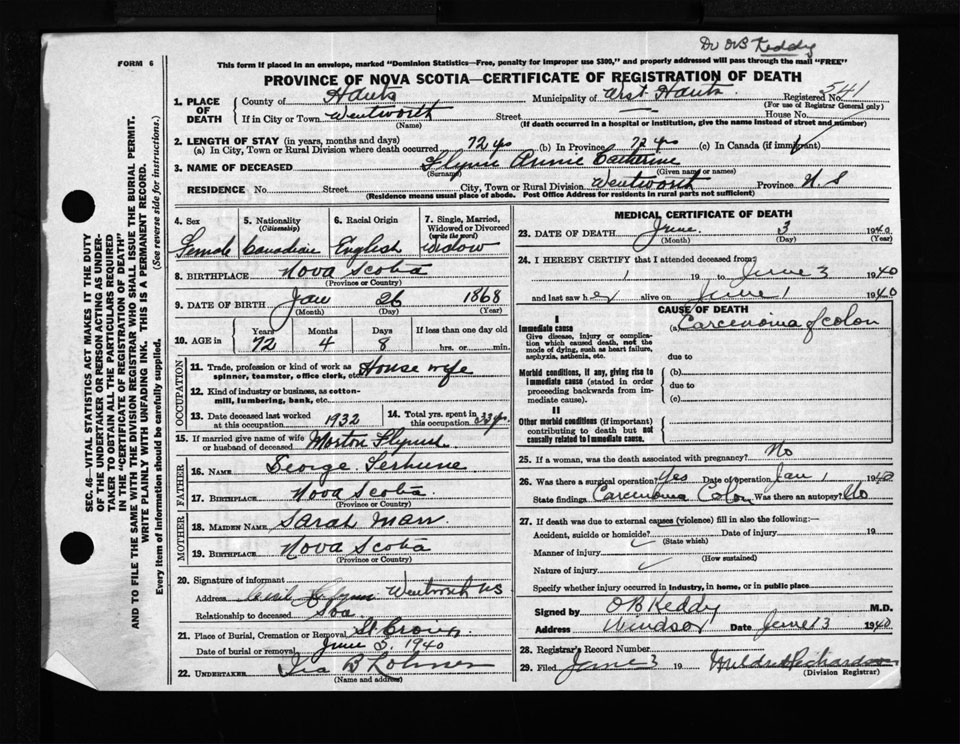 Dr OB Keddy
FORM 6
This form if placed in an envelope, marked "Dominion Statistics—Free, penalty for improper use $300," and properly addressed will pass through the mail "FREE"
PROVINCE OF NOVA SCOTIA—CERTIFICATE OF REGISTRATION OF DEATH
Registered No. 541
(For use of Registrar General only)
1. PLACE OF DEATH
County of Hants Municipality of West Hants
If in City or Town Wentworth Street House No.
(Name) (If death occurred in a hospital or institution, give the name instead of street and number)
2. LENGTH OF STAY (in years, months and days)
(a) In City, Town or Rural Division where death occurred 72 yrs (b) In Province 72 yrs (c) In Canada (if immigrant)
3. NAME OF DECEASED Flynn Annie Catherine
(Surname) (Given name or names)
RESIDENCE No. Street City, Town or Rural Division Wentworth Province N.S
(Residence means usual place of abode. Post Office Address for residents in rural parts not sufficient)
4. Sex Female
5. Nationality (Citizenship) Canadian
6. Racial Origin English
7. Single, Married, Widowed or Divorced (write the word) Widow
8. BIRTHPLACE Nova Scotia
(Province or Country)
9. DATE OF BIRTH Jan 26 1868
(Month) (Day) (Year)
10. AGE in Years 72 Months 4 Days 8 If less than one day old hrs. or min.
OCCUPATION
11. Trade, profession or kind of work as spinner, teamster, office clerk, etc. House wife
12. Kind of industry or business, as cotton-mill, lumbering, bank, etc.
13. Date deceased last worked at this occupation 1932
14. Total yrs. spent in this occupation 33 yrs
15. If married give name of wife or husband of deceased Morton Flynn
FATHER
16. NAME George
17. BIRTHPLACE Nova Scotia
(Province or Country)
MOTHER
18. MAIDEN NAME Sarah Marr
19. BIRTHPLACE Nova Scotia
(Province or Country)
20. Signature of informant Cecil Flynn
Address Wentworth NS
Relationship to deceased Son
21. Place of Burial, Cremation or Removal St Croix
Date of burial or removal June 5, 1940
22. UNDERTAKER Ira B
(Name and address)
MEDICAL CERTIFICATE OF DEATH
23. DATE OF DEATH June 3 1940
(Month) (Day) (Year)
24. I HEREBY CERTIFY that I attended deceased from
1 19 to June 3 1940
and last saw her alive on June 1 1940
CAUSE OF DEATH
I
Immediate cause (a) Carcenoma of colon
Give disease, injury or complication which caused death, not the mode of dying, such as heart failure, asphyxia, asthenia, etc.
due to
Morbid conditions, if any, giving rise to immediate cause (stated in order proceeding backwards from immediate cause).
(b)
due to
(c)
II
Other morbid conditions (if important) contributing to death but not causally related to immediate cause.
25. If a woman, was the death associated with pregnancy? No
26. Was there a surgical operation? Yes Date of operation Jan 1 1940
State findings Carcenoma Colon Was there an autopsy? No
27. If death was due to external causes (violence) fill in also the following:—
Accident, suicide or homicide? Date of injury 19
(State which)
Manner of injury
(How sustained)
Nature of injury
Specify whether injury occurred in industry, in home, or in public place
Signed by OB Keddy M.D.
Address Windsor Date June 3 1940
28. Registrar's Record Number
29. Filed June 3 19 Mildred Richardson
(Division Registrar)
SEC. 46—VITAL STATISTICS ACT MAKES IT THE DUTY
OF THE UNDERTAKER OR PERSON ACTING AS UNDER-
TAKER TO OBTAIN ALL THE PARTICULARS REQUIRED
IN THE "CERTIFICATE OF REGISTRATION OF DEATH"
AND TO FILE THE SAME WITH THE DIVISION REGISTRAR WHO SHALL ISSUE THE BURIAL PERMIT.
WRITE PLAINLY WITH UNFADING INK. THIS IS A PERMANENT RECORD.
Every item of information should be carefully supplied. (See reverse side for instructions.)